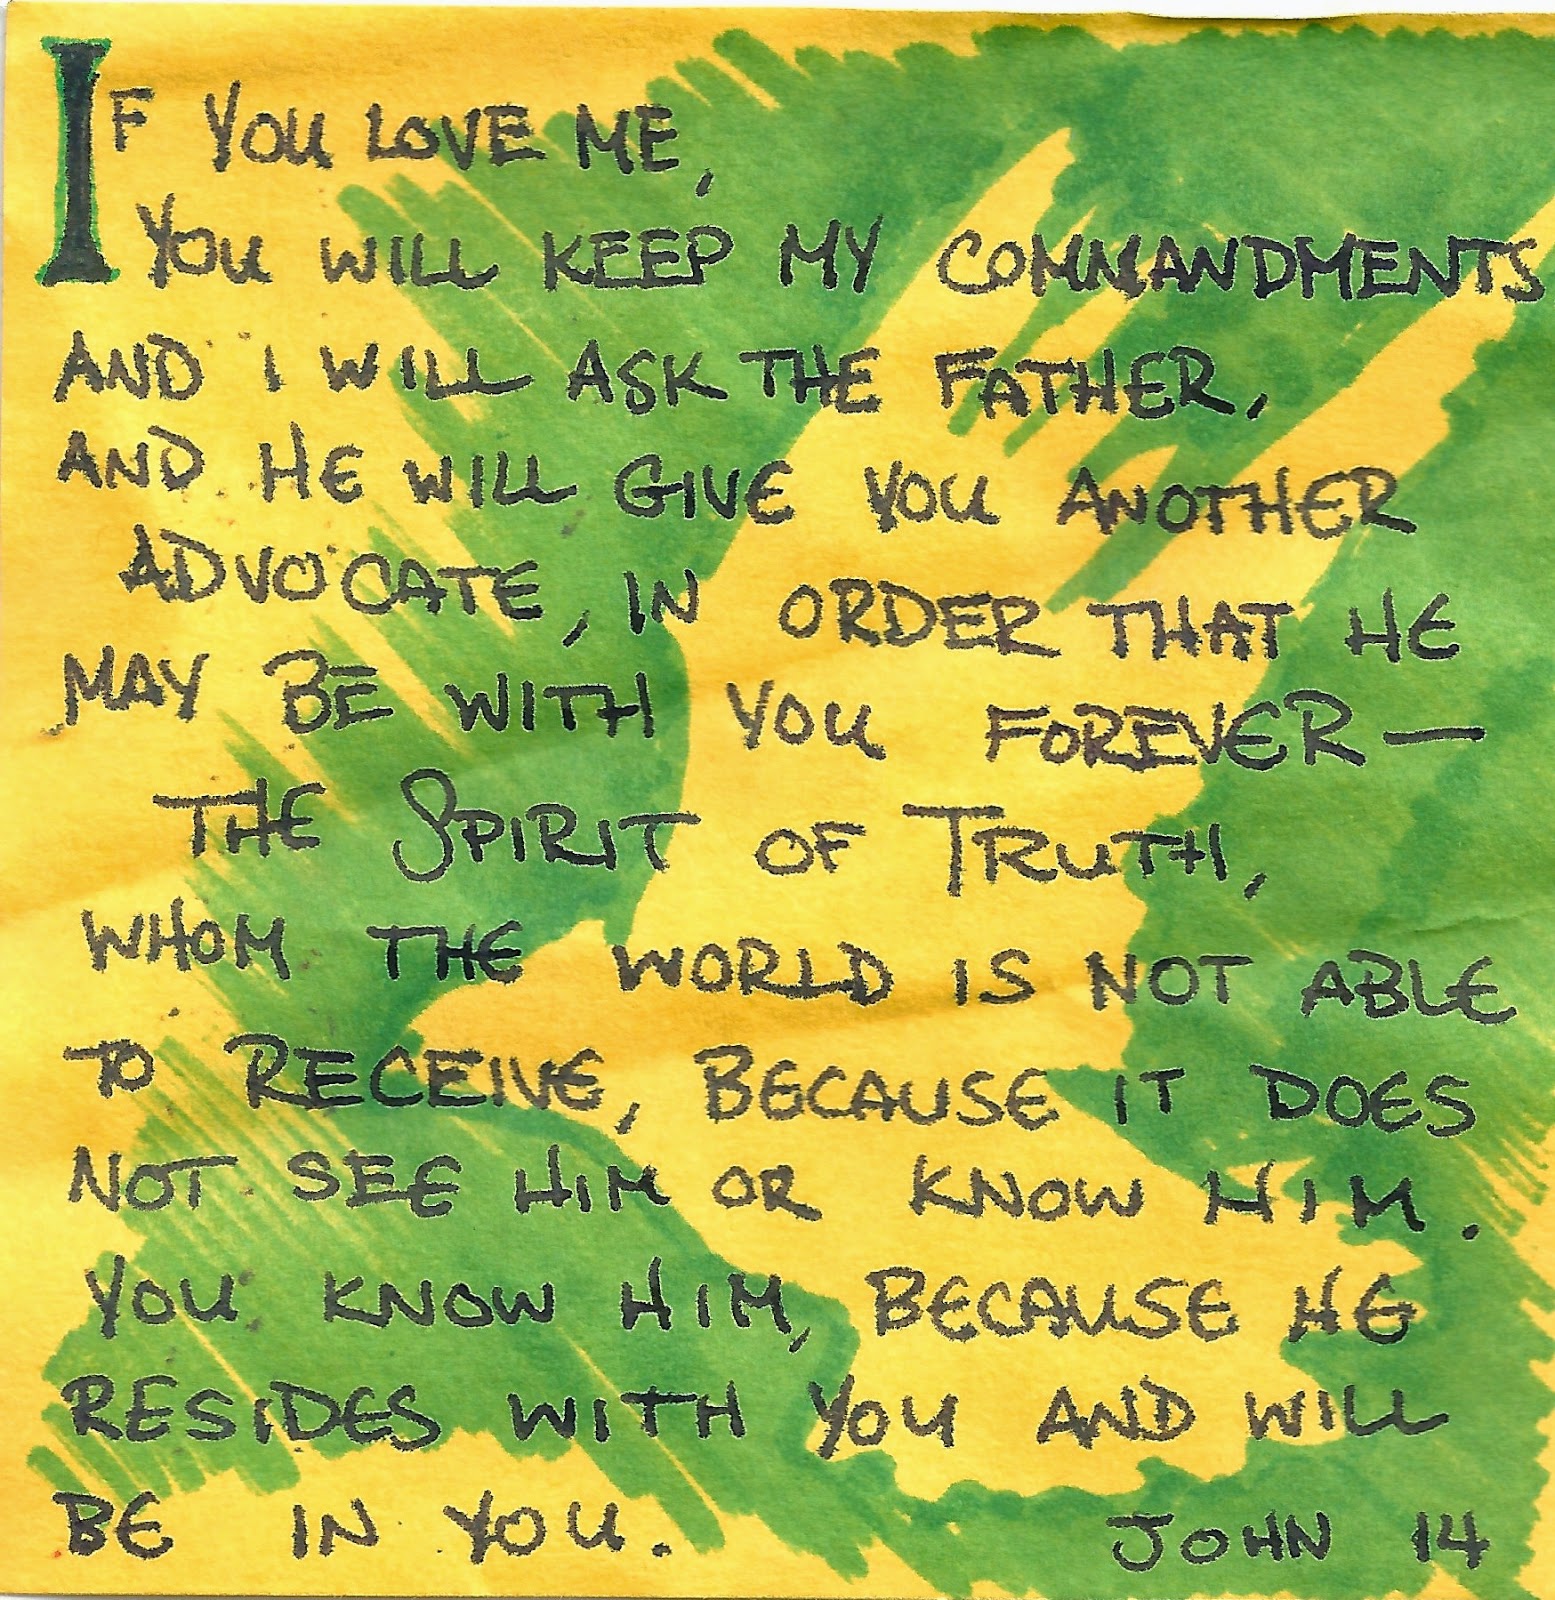 IF YOU LOVE ME,
YOU WILL KEEP MY COMMANDMENTS
AND I WILL ASK THE FATHER,
AND HE WILL GIVE YOU ANOTHER
ADVOCATE, IN ORDER THAT HE
MAY BE WITH YOU FOREVER—
THE SPIRIT OF TRUTH,
WHOM THE WORLD IS NOT ABLE
TO RECEIVE, BECAUSE IT DOES
NOT SEE HIM OR KNOW HIM.
YOU KNOW HIM, BECAUSE HE
RESIDES WITH YOU AND WILL
BE IN YOU. JOHN 14